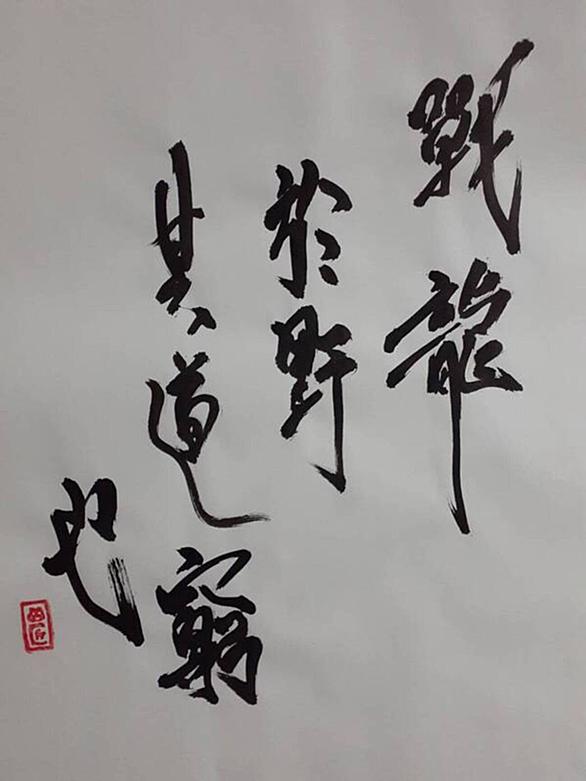 戰龍
於野
其道窮
也